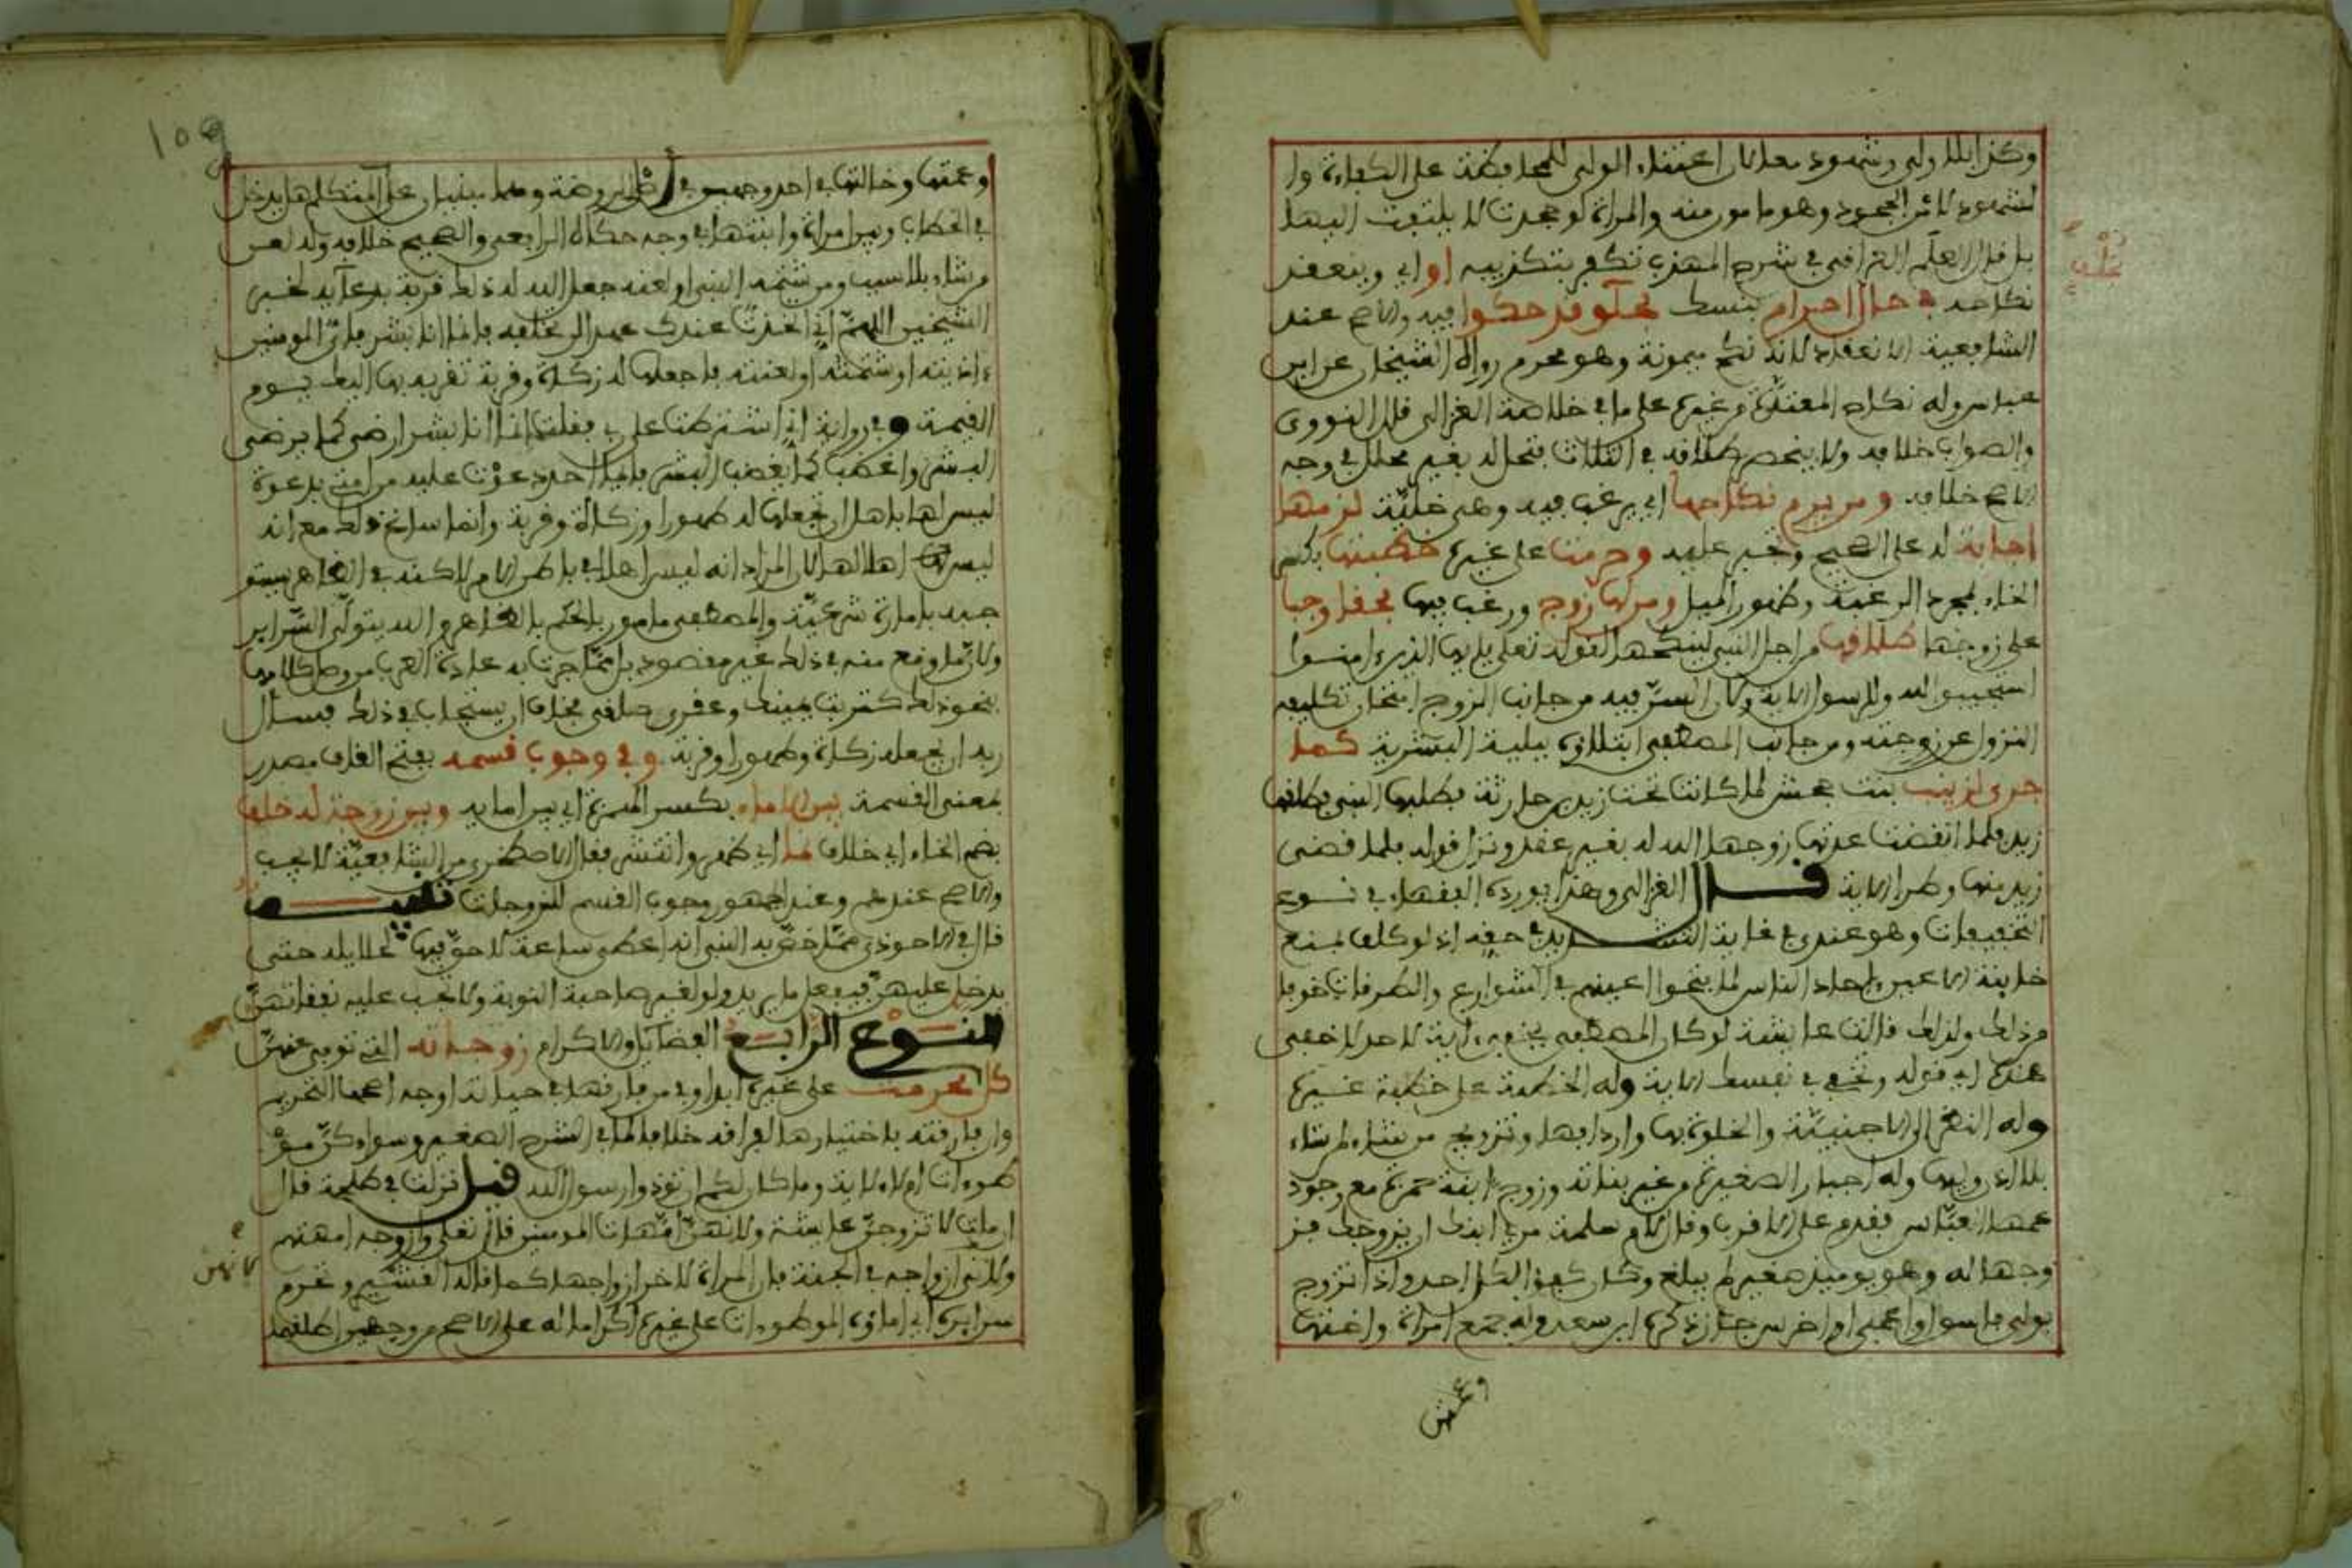 وكذا بلا ولي وشهود لان اعتناء الولي للمحافظة على الكفاءة وا
لشهود لامن الجحود وهو مامور منه والمراة لو جحدت لا يلتفت اليها
بل قال العلم العراقي في شرح المهذب تكفر بتكذيبه او اي وينعقد
نكاحه في حال احرام بنسك فيه والاصح عند
الشافعية الانعقاد لانه نكح ميمونة وهو محرم رواه الشيخان عن ابن
عباس وله نكاح المعتدة من غيره على ما في خلاصة الغزالي قال النووي
والصواب خلافه ولا ينحصر طلاقه في الثلاث فتحل له بغير محلل في وجه
الاصح خلافه ومن يرم نكاحها اي يرغب فيه وهي خلية لزمها
اجابة له على الصحيح وتجبر عليه وحرمت على غيره خطبتها بكسر
الخاء بمجرد الرغبة وظهور الميل ومن لها زوج ورغب فيها وجبا
على زوجها طلاقها من اجل النبي لينكحها لقوله تعلى يايها الذين ءامنوا
استجيبوا لله وللرسول الاية وكان السر فيه من جانب الزوج امتحان تكليفه
النزول عن زوجته ومن جانب المصطفى ابتلاؤه ببلية البشرية كما
جرى لزينب بنت جحش لما كانت تحت زيد بن حارثة فطلبها النبي فطلقها
زيد فلما انقضت عدتها زوجها الله له بغير عقد ونزل قوله فلما قضى
زيد منها وطرا الاية قال الغزالي وهذا يورده الفقهاء في نوع
التخفيفات وهو عندي في غاية التشديد في حقه اذ لو كلف بمنع
خاينة الاعين احاد الناس لما فتحوا اعينهم في الشوارع والطرقات خوفا
من ذلك ولذلك قالت عايشة لو كان المصطفى يخفي ءاية لاحد لاخفى
هذه اي قوله وتخفي في نفسك الاية وله الخطبة على خطبة غيره
وله النظر الى الاجنبية والخلوة بها واردافها وتزويج من شاء لمن شاء
بلا اذن وليها وله اجبار الصغيرة من غير بناته وزوج ابنة حمزة مع وجود
عمها العباس فقدم على الاقرب وقال لام سلمة مري ابنك ان يزوجك فز
وجها له وهو يوميذ صغير لم يبلغ وكان كفؤا لكل احد واذا تزوج
بولي فاسق او اعمى او اخرس جاز ذكره ابن سعد وله جمع امراة واختها
وعمتها
109
وعمتها وخالتها في احد وجهين في اصل الروضة وهما مبنيان على ان المتكلم هل يدخل
في الخطاب وبين امراة وابنتها في وجه حكاه الرافعي والصحيح خلافه وله لعن
من شاء بلا سبب ومن شتمه النبي او لعنه جعل الله له ذلك قربة بدعايه لخبر
الشيخين اللهم اني اتخذت عندك عهدا لن تخلفه فانما انا بشر فاي المومنين
ءاذيته او شتمته او لعنته فاجعلها له زكاة وقربة تقربه بها اليك يوم
القيمة وفي رواية اني اشترطت على ربي فقلت انما انا بشر ارضى كما يرضى
البشر واغضب كما يغضب البشر فايما احد دعوت عليه من امتي بدعوة
ليس لها باهل ان تجعلها له طهورا وزكاة وقربة وانما ساغ ذلك مع انه
ليس اهلا لها لان المراد انه ليس اهلا في باطن الامر لاكنه في الظاهر يستو
جبه بامارة شرعية والمصطفى مامور بالحكم بالظاهر والله يتولى السراير
ولان ما وقع منه في ذلك غير مقصود بل مما جرت به عادة العرب من وصل كلامها
بنحو ذلك كتربت يمينك وعقرى حلقى فخاف ان يستجاب في ذلك فسال
ربه ان يجعله زكاة وطهورا وقربة وفي وجوب قسمه بفتح القاف مصدر
بمعنى القسمة بين الاماء بكسر الهمزة اي بين امايه وبين زوجة له خلف
بضم الخاء اي خلاف نما اي ظهر وانتشر فقال الاصطخري من الشافعية لا يجب
والاصح عندهم وعند الجمهور وجوب القسم للزوجات تنبيه
قال في الاحوذي مما خص به النبي انه اعطي ساعة لا حق فيها لحلايله حتى
يدخل عليهن فيفعل ما يريد ولو لغير صاحبة النوبة ولا تجب عليه نفقاتهن
النوع الرابع الفضايل والاكرام زوجاته التي توفي عنهن
كل تحرمت على غيره ابدا وفي من فارقها في حياته اوجه اصحها التحريم
وان فارقته باختيارها لفراقه خلافا لما في الشرح الصغير وسواء كن مو
طوءات ام لا لاية وما كان لكم ان توذوا رسول الله قيل نزلت في طلحة قال
ان مات لاتزوجن عايشة ولانهن امهات المومنين قال تعلى وازوجه امهتهم
ولانهن ازواجه في الجنة فان المراة لاخر ازواجها كما قاله القشيري وتحرم
سراريه اي اماؤه الموطوءات على غيره اكراما له على الاصح من وجهين اطلقهما
لانهن